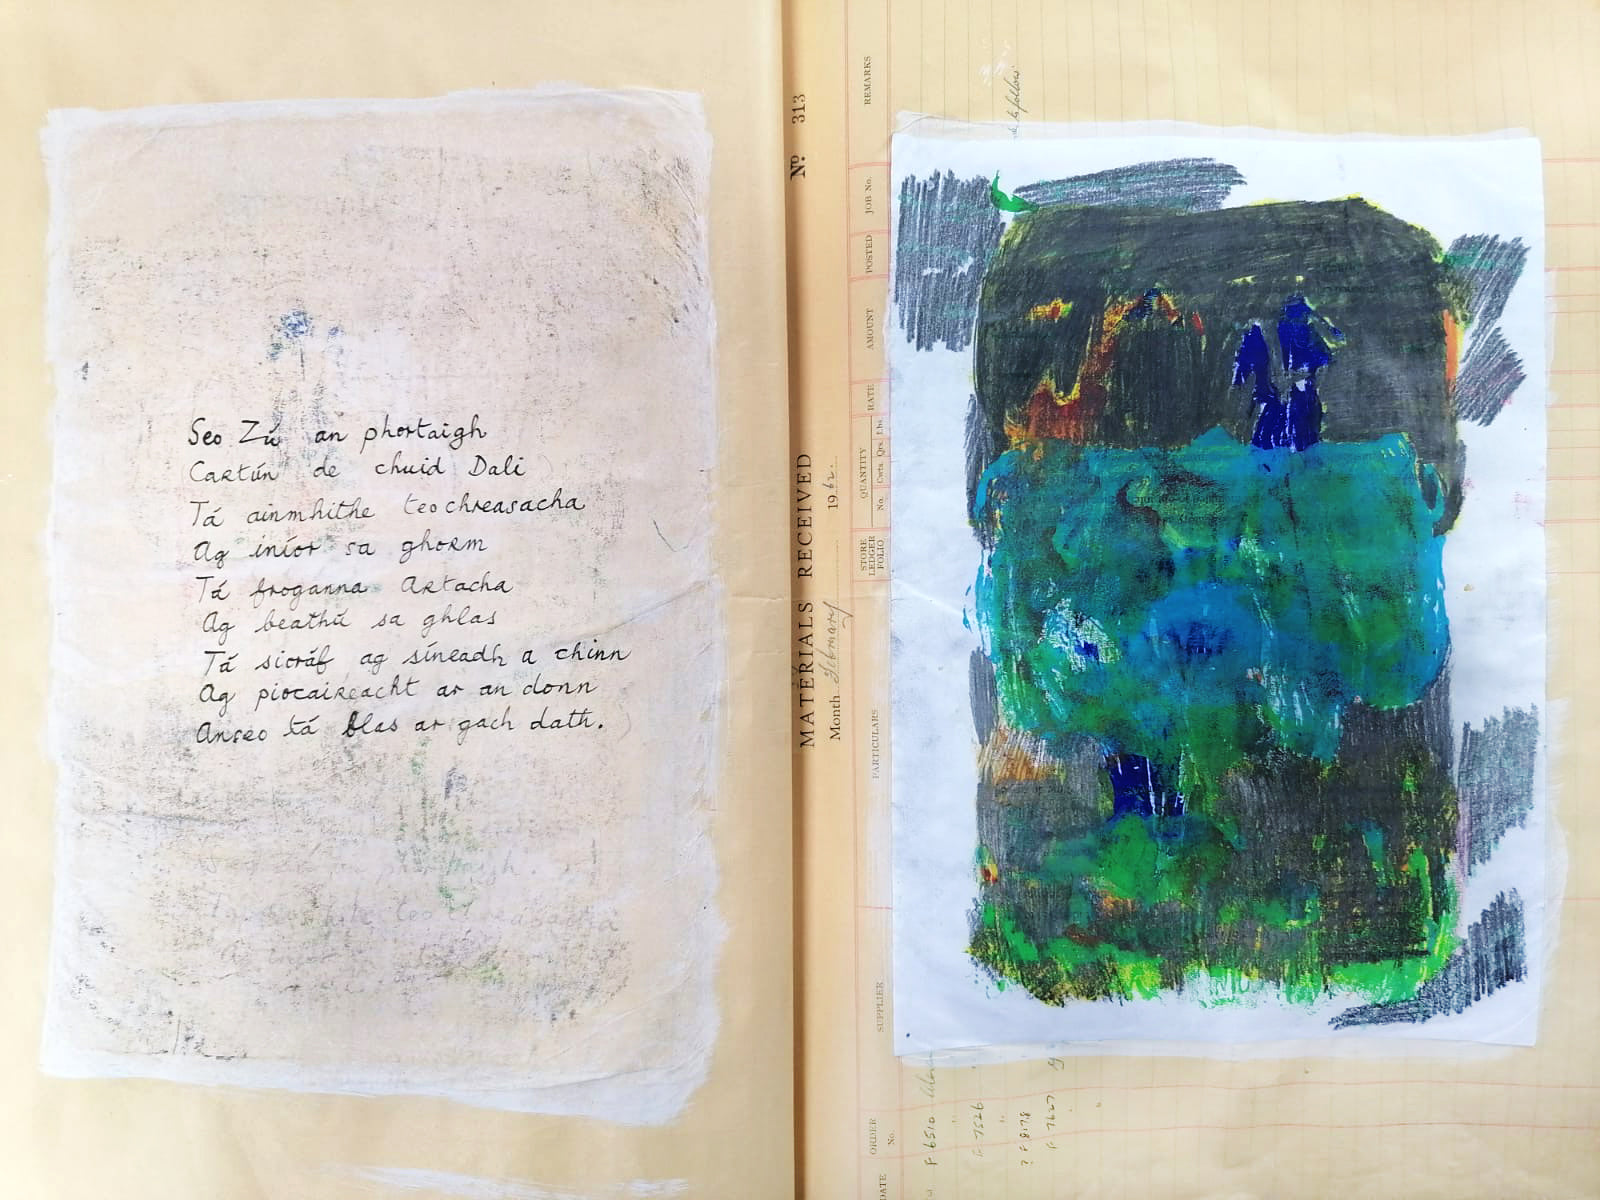 Seo Zú an phortaigh
Cartún de chuid Dali
Tá ainmhithe teochreasacha
Ag iníor sa ghorm
Tá froganna Artacha
Ag beathú sa ghlas
Tá sioráf ag síneadh a chinn
Ag piocaireacht ar an donn
Anseo tá blas ar gach dath.
No. 313
MATERIALS RECEIVED
Month February 1962.
DATE
ORDER No.
SUPPLIER
PARTICULARS
STORE LEDGER FOLIO
QUANTITY
No. Cwts. Qrs. Lbs.
RATE
AMOUNT
POSTED
JOB No.
REMARKS
to follow.
F 6510